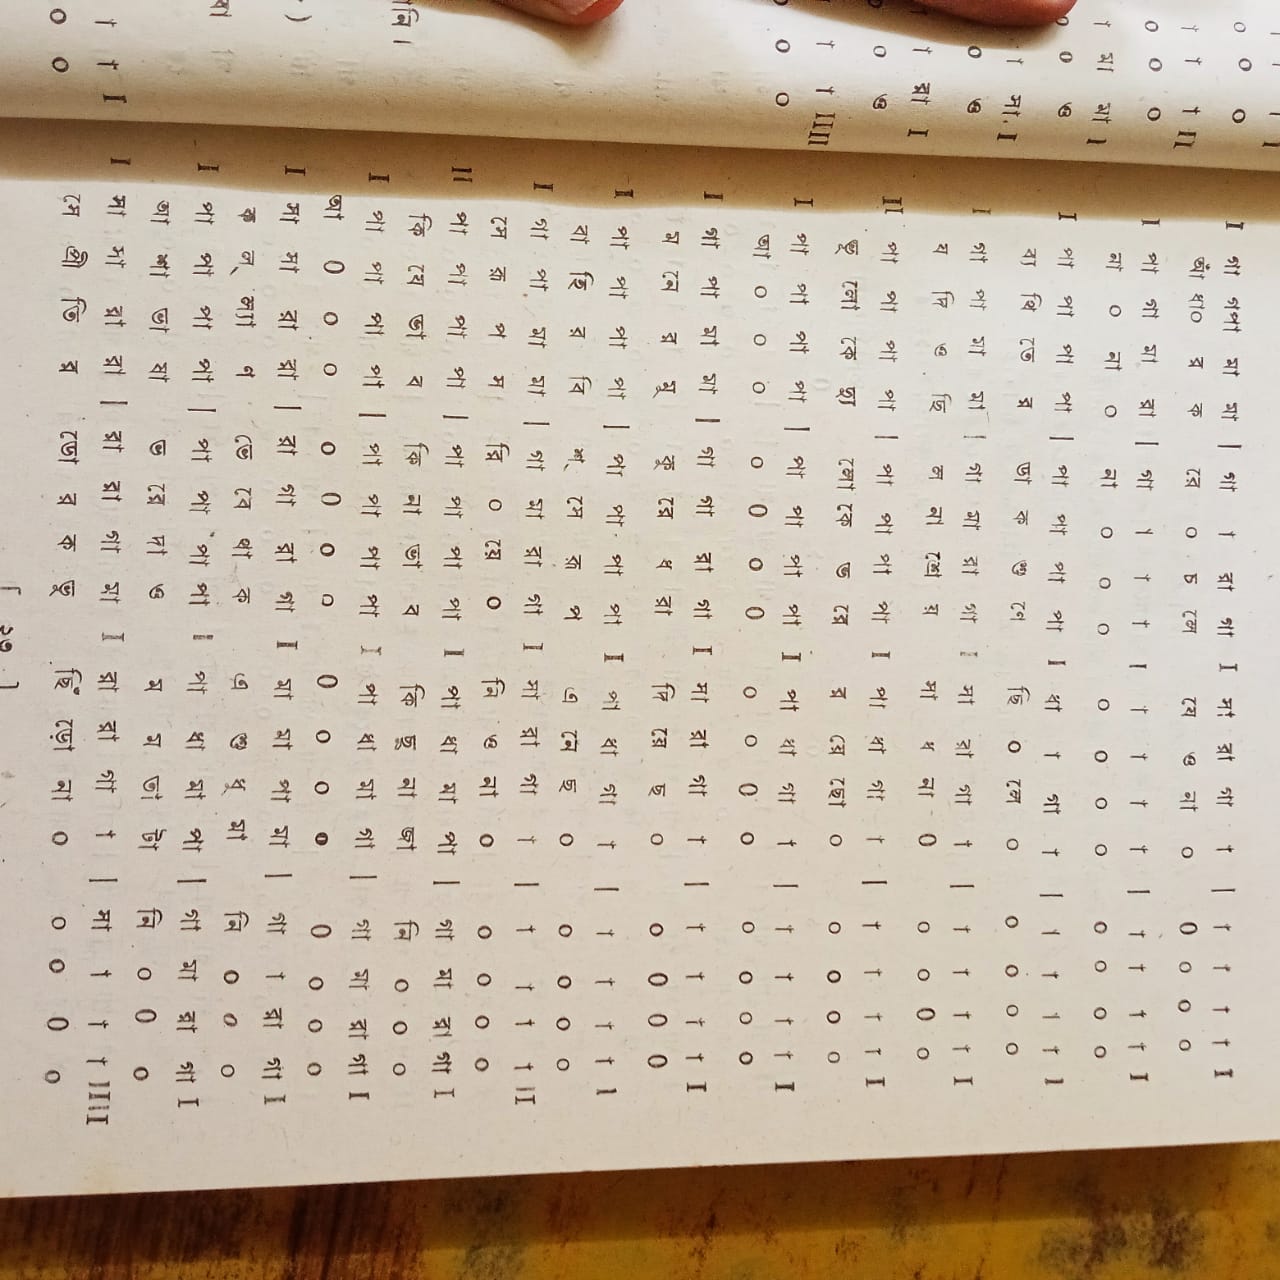 I গা গপা মা মা | গা † রা গা I সা রা গা † | † † † † I
আঁ ধা০ র ক রে ০ চ লে যে ও না ০ ০ ০ ০ ০
I পা পা মা রা | গা † † † | † † † † | † † † † I
না ০ না ০ না ০ ০ ০ ০ ০ ০ ০ ০ ০ ০ ০
I পা পা পা পা | পা পা পা পা I ধা † পা † | † † † † I
ব্য থি তে র ডা ক শু নে ছি ০ লে ০ ০ ০ ০ ০
I গা পা মা মা | গা মা রা গা I সা রা গা † | † † † † I
য দি ও ছি ল না মো র সা ধ না ০ ০ ০ ০ ০
II পা পা পা পা | পা পা পা পা I পা ধা পা † | † † † † I
ভূ লো কে দ্যু লো কে ভ রে র য়ে ছো ০ ০ ০ ০ ০
I পা পা পা পা | পা পা পা পা I পা ধা পা † | † † † † I
আ ০ ০ ০ ০ ০ ০ ০ ০ ০ ০ ০ ০ ০ ০ ০
I গা পা মা মা | গা গা রা গা I সা রা গা † | † † † † I
ম নে র মু কু রে ধ রা দি য়ে ছ ০ ০ ০ ০ ০
I পা পা পা পা | পা পা পা পা I পা ধা পা † | † † † † I
বা হি র বি শ্ সে রূ প এ নে ছ ০ ০ ০ ০ ০
I গা পা মা মা | গা মা রা গা I সা রা গা † | † † † † II
সে রূ প স রি ০ য়ে ০ নি ও না ০ ০ ০ ০ ০
II পা পা পা পা | পা পা পা পা I পা ধা মা পা | গা মা রা গা I
কি যে ভা ব কি না ভা ব কি ছু না জা নি ০ ০ ০
I পা পা পা পা | পা পা পা পা I পা ধা মা পা | গা মা রা গা I
আ ০ ০ ০ ০ ০ ০ ০ ০ ০ ০ ০ ০ ০ ০ ০
I সা সা রা রা | রা গা রা গা I মা মা পা মা | গা † রা গা I
ক ল্ ল্যা ণ ভে বে থা ক এ শু ধু মা নি ০ ০ ০
I পা পা পা পা | পা পা পা পা I পা ধা মা পা | গা মা রা গা I
আ শা ভা ষা ভ রে দা ও ম ম ভা টা নি ০ ০ ০
I সা সা রা রা | রা রা গা মা I রা রা গা † | সা † † † IIII
সে প্রী তি র ডো র ক ভু ছিঁ ড়ো না ০ ০ ০ ০ ০